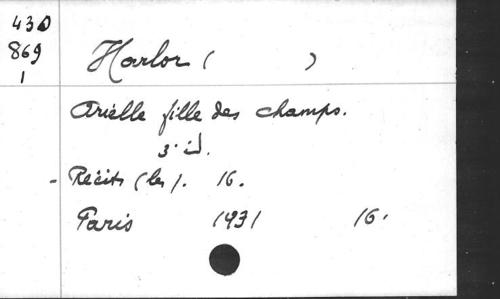 430
869
1
Harlor (            )
Arielle fille des champs.
3. éd.
- Récits (les). 16.
Paris 1931 16.